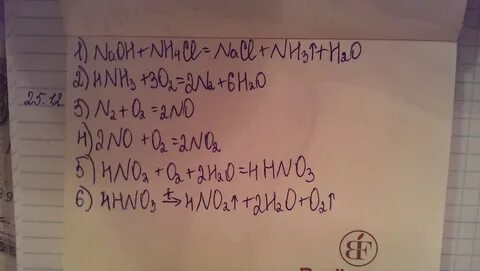 1) NaOH + NH4Cl = NaCl + NH3↑ + H2O
2) 4NH3 + 3O2 = 2N2 + 6H2O
25.12
3) N2 + O2 = 2NO
4) 2NO + O2 = 2NO2
5) 4NO2 + O2 + 2H2O = 4HNO3
6) 4HNO3 t→ 4NO2↑ + 2H2O + O2↑
BF